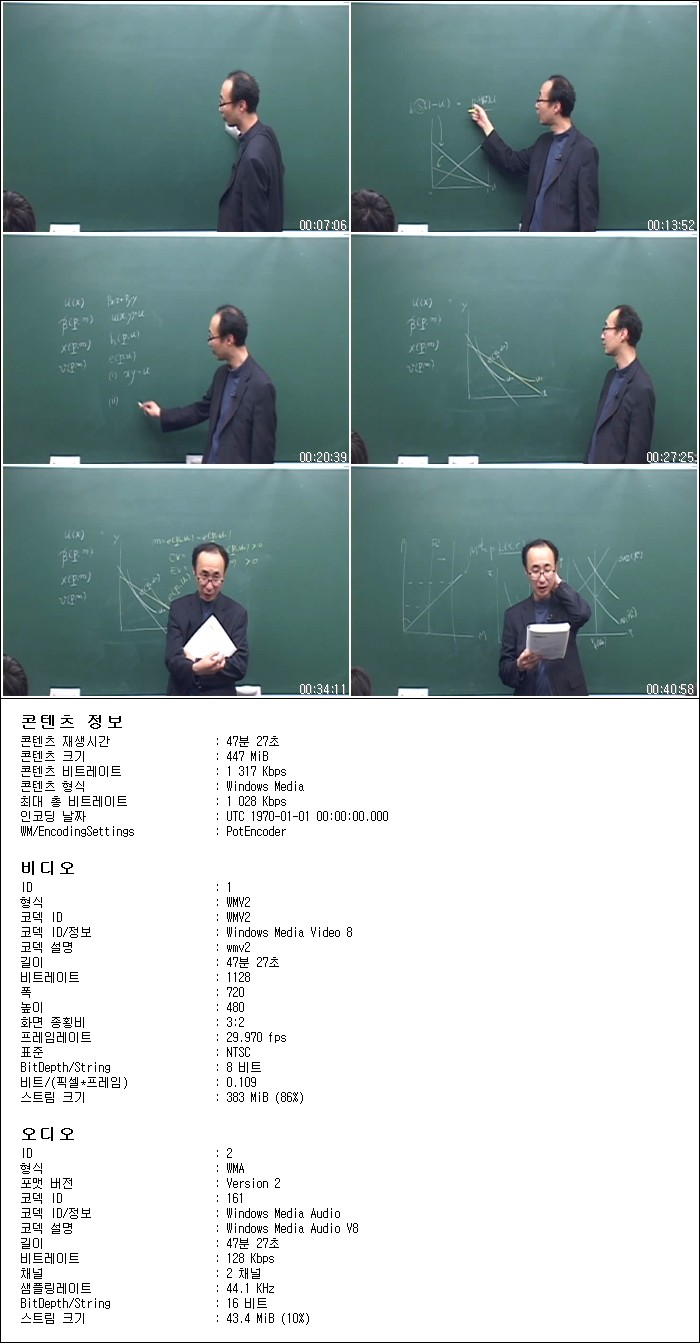 00:07:06
00:13:52
u(x)
00:20:39
u(x)
00:27:25
u(x)
00:34:11
00:40:58
콘텐츠 정보
콘텐츠 재생시간 : 47분 27초
콘텐츠 크기 : 447 MiB
콘텐츠 비트레이트 : 1 317 Kbps
콘텐츠 형식 : Windows Media
최대 총 비트레이트 : 1 028 Kbps
인코딩 날짜 : UTC 1970-01-01 00:00:00.000
WM/EncodingSettings : PotEncoder
비디오
ID : 1
형식 : WMV2
코덱 ID : WMV2
코덱 ID/정보 : Windows Media Video 8
코덱 설명 : wmv2
길이 : 47분 27초
비트레이트 : 1128
폭 : 720
높이 : 480
화면 종횡비 : 3:2
프레임레이트 : 29.970 fps
표준 : NTSC
BitDepth/String : 8 비트
비트/(픽셀*프레임) : 0.109
스트림 크기 : 383 MiB (86%)
오디오
ID : 2
형식 : WMA
포맷 버전 : Version 2
코덱 ID : 161
코덱 ID/정보 : Windows Media Audio
코덱 설명 : Windows Media Audio V8
길이 : 47분 27초
비트레이트 : 128 Kbps
채널 : 2 채널
샘플링레이트 : 44.1 KHz
BitDepth/String : 16 비트
스트림 크기 : 43.4 MiB (10%)